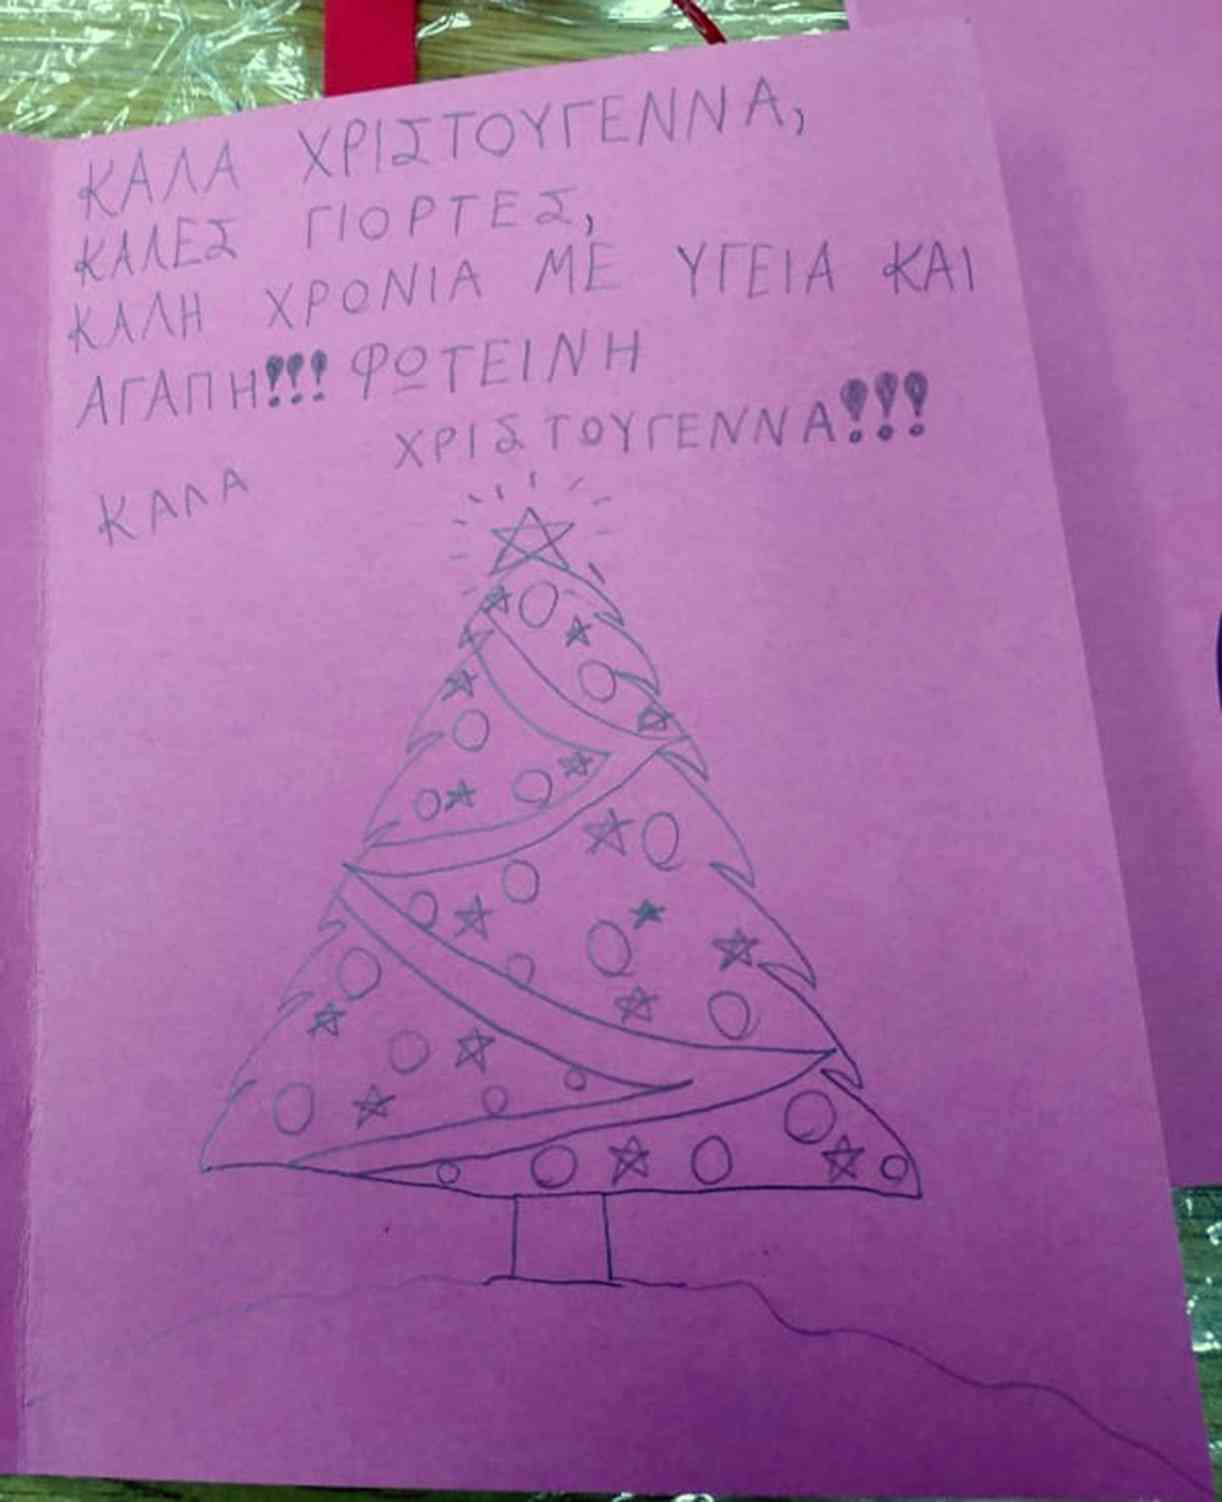 ΚΑΛΑ ΧΡΙΣΤΟΥΓΕΝΝΑ,
ΚΑΛΕΣ ΓΙΟΡΤΕΣ,
ΚΑΛΗ ΧΡΟΝΙΑ ΜΕ ΥΓΕΙΑ ΚΑΙ
ΑΓΑΠΗ!!! ΦΩΤΕΙΝΗ
ΚΑΛΑ ΧΡΙΣΤΟΥΓΕΝΝΑ!!!